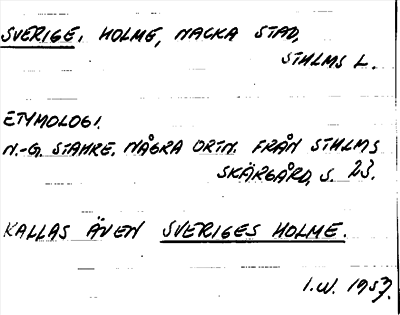 SVERIGE, HOLME, NACKA STAD,
STHLMS L.
ETYMOLOGI.
N.-G. STAHRE. NÅGRA ORTN. FRÅN STHLMS
SKÄRGÅRD, S. 23.
KALLAS ÄVEN SVERIGES HOLME.
I.W. 1953.